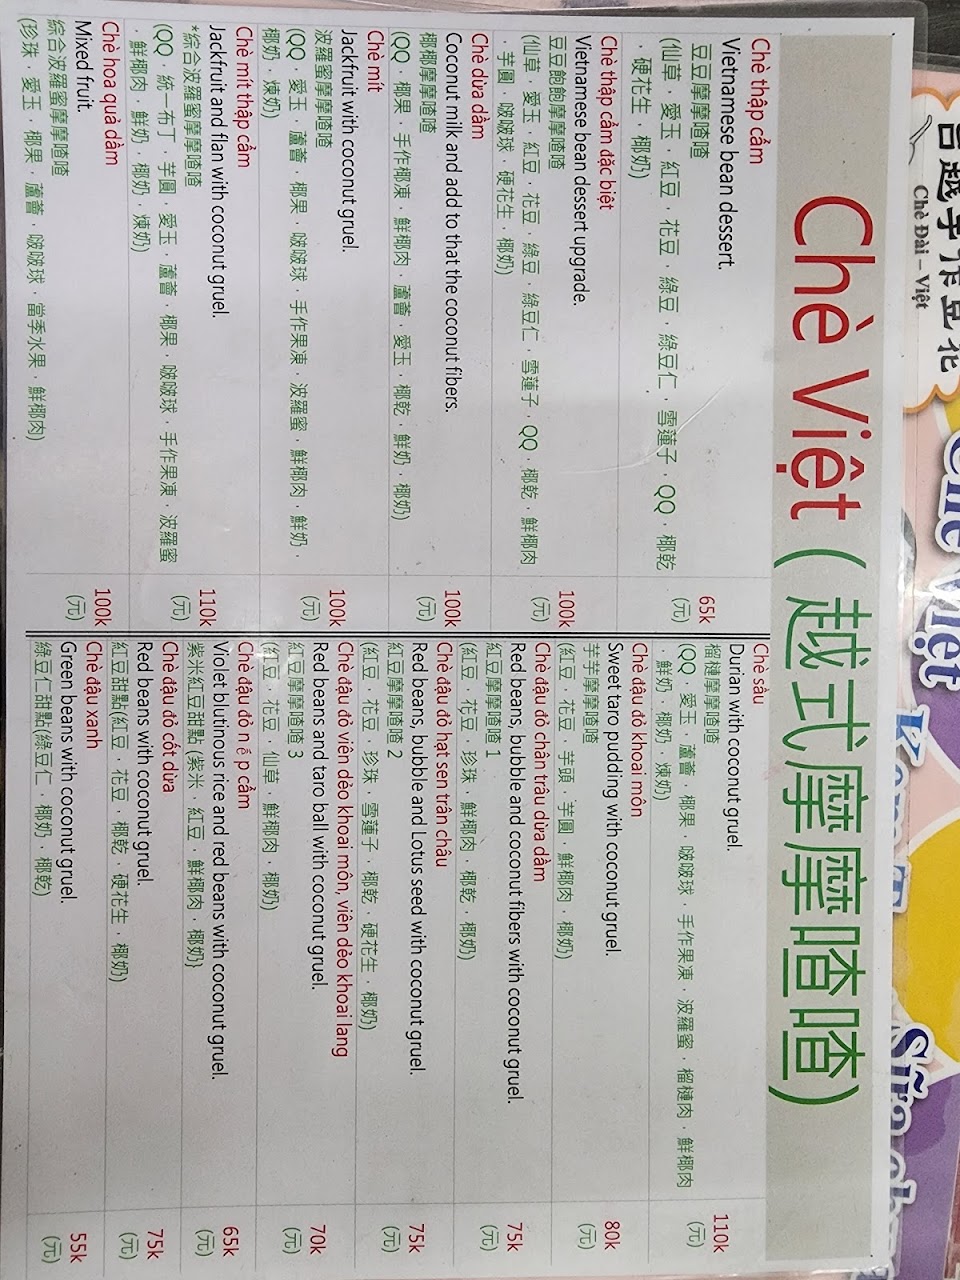 Chè Đài – Việt
Chè Việt (越式摩摩喳喳)
Chè thập cẩm
Vietnamese bean dessert.
豆豆摩摩喳喳
(仙草﹒愛玉﹒紅豆﹒花豆﹒綠豆﹒綠豆仁﹒雪蓮子﹒QQ﹒椰乾
﹒硬花生﹒椰奶)
65k
(元)
Chè thập cẩm đặc biệt
Vietnamese bean dessert upgrade.
豆豆飽飽摩摩喳喳
(仙草﹒愛玉﹒紅豆﹒花豆﹒綠豆﹒綠豆仁﹒雪蓮子﹒QQ﹒椰乾﹒鮮椰肉
﹒芋圓﹒啵啵球﹒硬花生﹒椰奶)
100k
(元)
Chè dừa dầm
Coconut milk and add to that the coconut fibers.
椰椰摩摩喳喳
(QQ﹒椰果﹒手作椰凍﹒鮮椰肉﹒蘆薈﹒愛玉﹒椰乾﹒鮮奶﹒椰奶)
100k
(元)
Chè mít
Jackfruit with coconut gruel.
波羅蜜摩摩喳喳
(QQ﹒愛玉﹒蘆薈﹒椰果﹒啵啵球﹒手作果凍﹒波羅蜜﹒鮮椰肉﹒鮮奶﹒
椰奶﹒煉奶)
100k
(元)
Chè mít thập cẩm
Jackfruit and flan with coconut gruel.
*綜合波羅蜜摩摩喳喳
(QQ﹒統一布丁﹒芋圓﹒愛玉﹒蘆薈﹒椰果﹒啵啵球﹒手作果凍﹒波羅蜜
﹒鮮椰肉﹒鮮奶﹒椰奶﹒煉奶)
110k
(元)
Chè hoa quả dầm
Mixed fruit.
綜合波羅蜜摩摩喳喳
(珍珠﹒愛玉﹒椰果﹒蘆薈﹒啵啵球﹒當季水果﹒鮮椰肉)
100k
(元)
Chè sầu
Durian with coconut gruel.
榴槤摩摩喳喳
(QQ﹒愛玉﹒蘆薈﹒椰果﹒啵啵球﹒手作果凍﹒波羅蜜﹒榴槤肉﹒鮮椰肉
﹒鮮奶﹒椰奶﹒煉奶)
110k
(元)
Chè đậu đỏ khoai môn
Sweet taro pudding with coconut gruel.
芋芋摩摩喳喳
(紅豆﹒花豆﹒芋頭﹒芋圓﹒鮮椰肉﹒椰奶)
80k
(元)
Chè đậu đỏ chân trâu dừa dầm
Red beans, bubble and coconut fibers with coconut gruel.
紅豆摩摩喳喳 1
(紅豆﹒花豆﹒珍珠﹒鮮椰肉﹒椰乾﹒椰奶)
75k
(元)
Chè đậu đỏ hạt sen trân châu
Red beans, bubble and Lotus seed with coconut gruel.
紅豆摩摩喳喳 2
(紅豆﹒花豆﹒珍珠﹒雪蓮子﹒椰乾﹒硬花生﹒椰奶)
75k
(元)
Chè đậu đỏ viên dẻo khoai môn, viên dẻo khoai lang
Red beans and taro ball with coconut gruel.
紅豆摩摩喳喳 3
(紅豆﹒花豆﹒仙草﹒鮮椰肉﹒椰奶)
70k
(元)
Chè đậu đỏ n ế p cẩm
Violet blutinous rice and red beans with coconut gruel.
紫米紅豆甜點 紫米﹒紅豆﹒鮮椰肉﹒椰奶}
65k
(元)
Chè đậu đỏ cốt dừa
Red beans with coconut gruel.
紅豆甜點(紅豆﹒花豆﹒椰乾﹒硬花生﹒椰奶)
75k
(元)
Chè đậu xanh
Green beans with coconut gruel.
綠豆仁甜點(綠豆仁﹒椰奶﹒椰乾)
55k
(元)